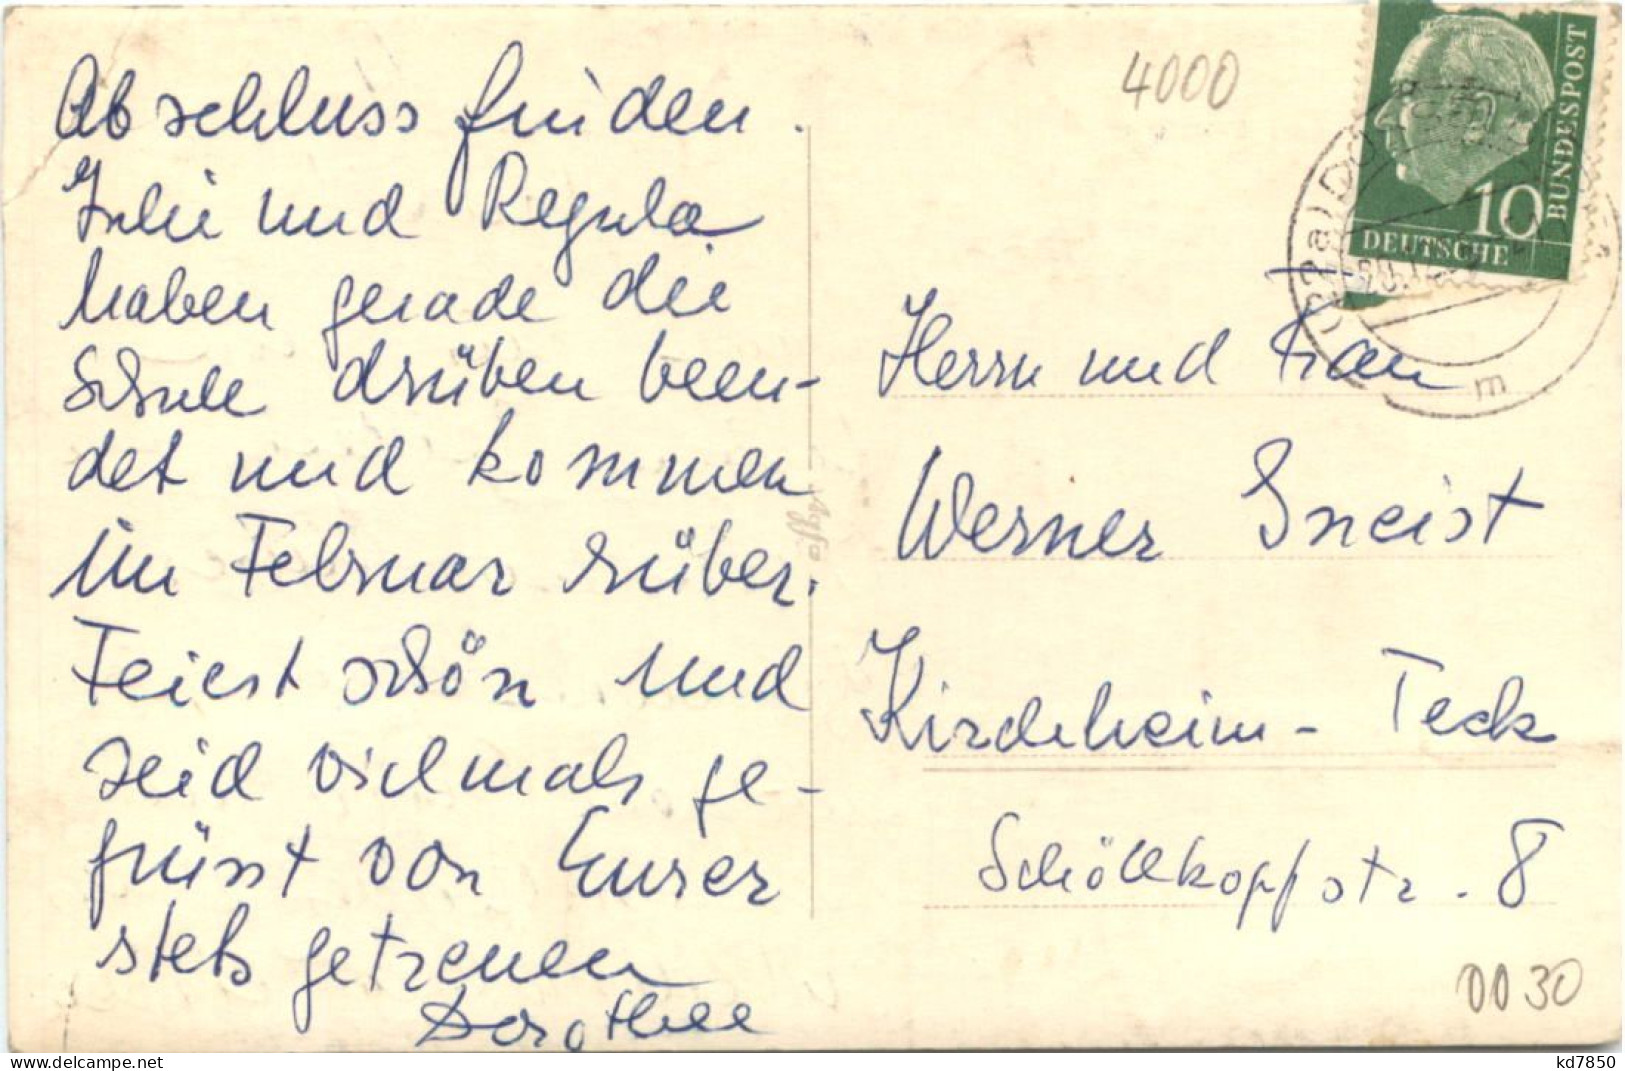 Abschluss finden.
Julie und Regula
haben gerade die
Schule drüben been-
det und kommen
im Februar rüber.
Feiert schön und
seid vielmals ge-
grüsst von Eurer
stets getreuen
Dorothee
4000
10
DEUTSCHE
BUNDESPOST
m
Herrn und Frau
Werner Gneist
Kirchheim-Teck
Schöllkopfstr. 8
0030
Agfa
www.delcampe.net
kd7850